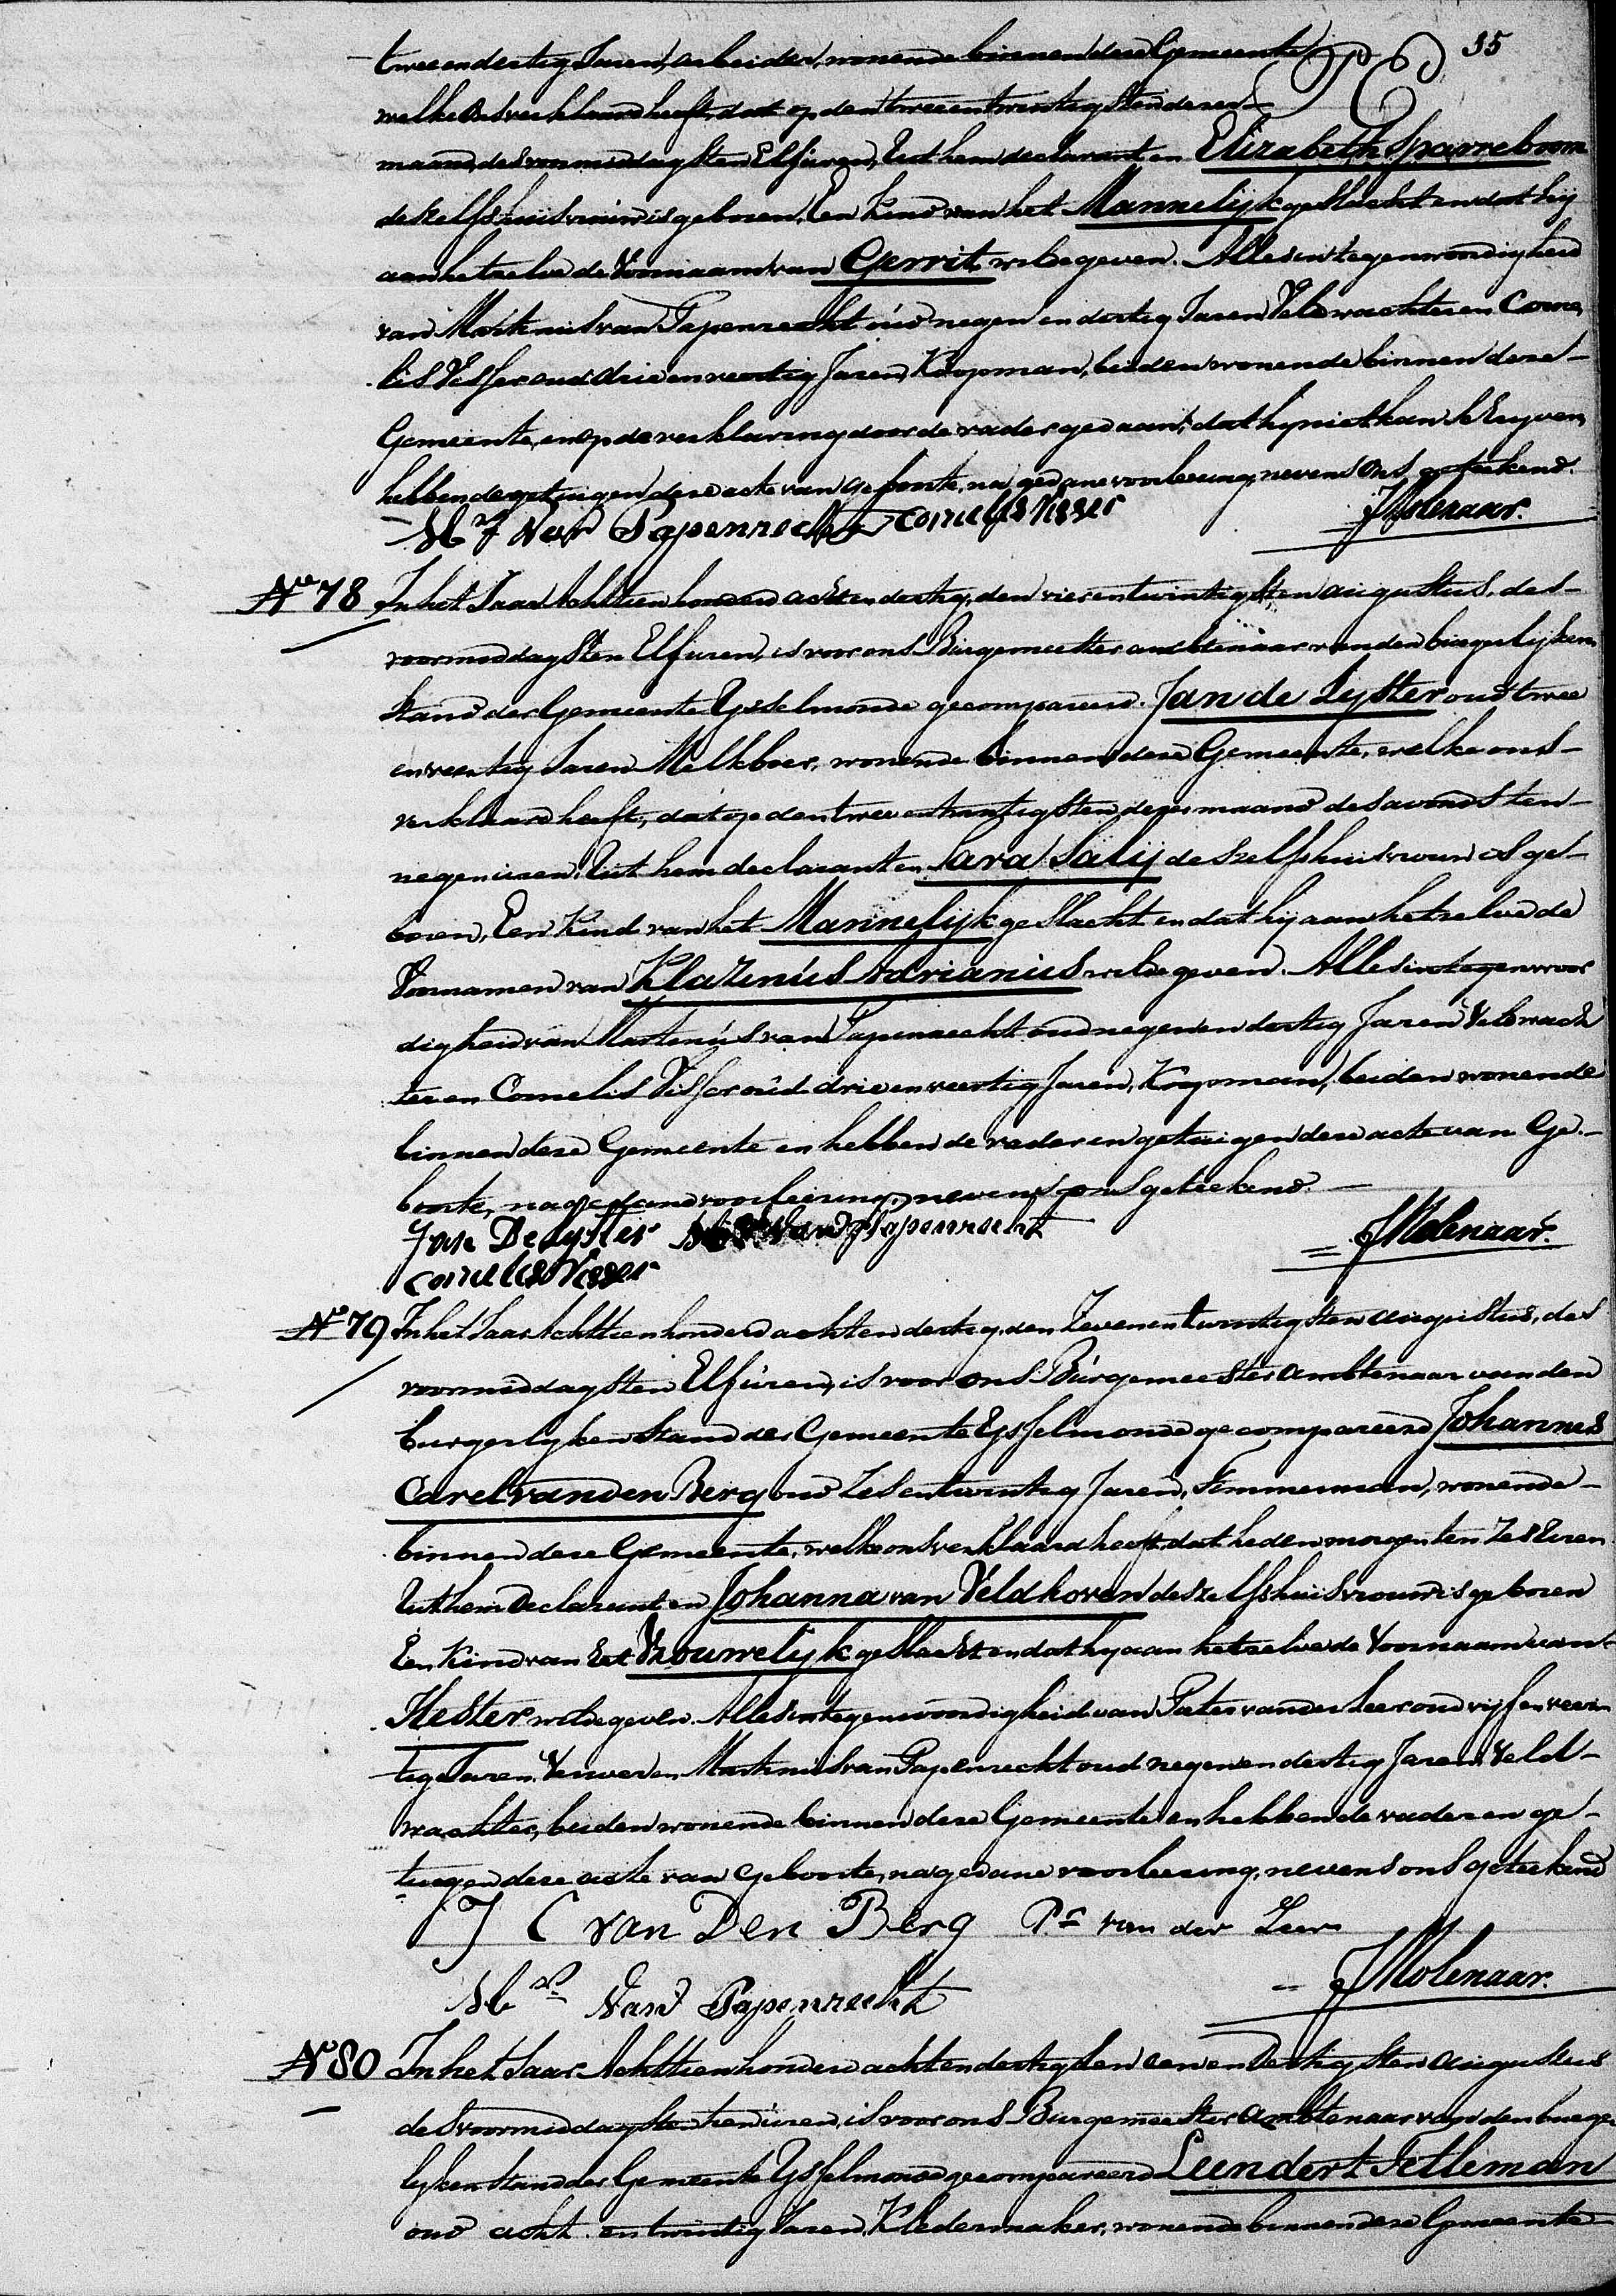 35
tweeendertig Jaren, arbeider, wonende binnen deze Gemeente
welke ons verklaard heeft, dat op den tweeentwintigsten dezer
maand, des voormiddags ten Elf uren, Uit hem declarant en Elizabeth Sparreboom
deszelfs huisvrouw is geboren, Een Kind van het Mannelijk geslacht en dat hij
aan hetzelve de Voornaam van Gerrit wil geven. Alles in tegenwoordigheid
van Martinus van Papenrecht oud negen en dertig Jaren Veldwachter en Corne
lis Visser oud drie en veertig Jaren, Koopman, beiden wonende binnen deze
Gemeente, en op de verklaring door de vader gedaan, dat hij niet kan schryven,
hebben de getuigen deze acte van geboorte, na gedane voorlezing, nevens ons geteekend.
Ms Van Papenrecht Cornelis Visser JMolenaar.
No 78 In het Jaar Achttien honderd acht en dertig, den vierentwintigsten augustus, des
voormiddags ten Elf uren, is voor ons Burgemeester ambtenaar van den burgerlijken
stand der Gemeente Ysselmonde gecompareerd Jan de Lyster oud twee
en veertig Jaren Melkboer, wonende binnen deze Gemeente, welke ons
verklaard heeft, dat op den tweeentwintigsten dezer maand des avonds ten
negen uren, Uit hem declarant en Sara Salij deszelfs huisvrouw is ge
boren, Een Kind van het Mannelijk geslacht en dat hij aan hetzelve de
Voornamen van Klazinus Adrianus wil geven. Alles in tegenwoor
digheid van Martinus van Papenrecht oud negen en dertig Jaren Veldwach
ter en Cornelis Visser oud drie en veertig Jaren, Koopman, beiden wonende
binnen deze Gemeente en hebben de vader en getuigen deze acte van Ge
boorte, na gedane voorlezing, nevens ons geteekend.
Jan De Lyster Ms Van Papenrecht JMolenaar.
Cornelis Visser
No 79 In het Jaar Achttienhonderd acht en dertig, den Zevenentwintigsten augustus, des
voormiddags ten Elf uren, is voor ons Burgemeester Ambtenaar van den
burgerlyken stand der Gemeente Ysselmonde gecompareerd Johannes
Carel van den Berg oud Zes entwintig Jaren, Timmerman, wonende
binnen deze Gemeente, welke ons verklaard heeft, dat heden morgen ten Zes Uren
Uit hem Declarant en Johanna van Veldhoven deszelfs huisvrouw is geboren
Een Kind van het Vrouwelyk geslacht en dat hy aan hetzelve de Voornaam van
Hester wil geven. Alles in tegenwoordigheid van Pieter van der Leer oud vijf en veer
tig Jaren, Verwer en Martinus van Papenrecht oud negen en dertig Jaren Veld
wachter, beiden wonende binnen deze Gemeente en hebben de vader en ge
tuigen deze acte van Geboorte, na gedane voorlezing, nevens ons geteekend
J C van Den Berg Pr van der Leer
Ms Van Papenrecht JMolenaar.
No 80 In het Jaar Achttienhonderd acht en dertig den een en Dertigsten Augustus
des voormiddags ten tien uren, is voor ons Burgemeester Ambtenaar van den burger
lyken stand der Gemeente Ysselmonde gecompareerd Leendert Fetleman
oud acht en twintig Jaren, Kledermaker, wonende binnen deze Gemeente